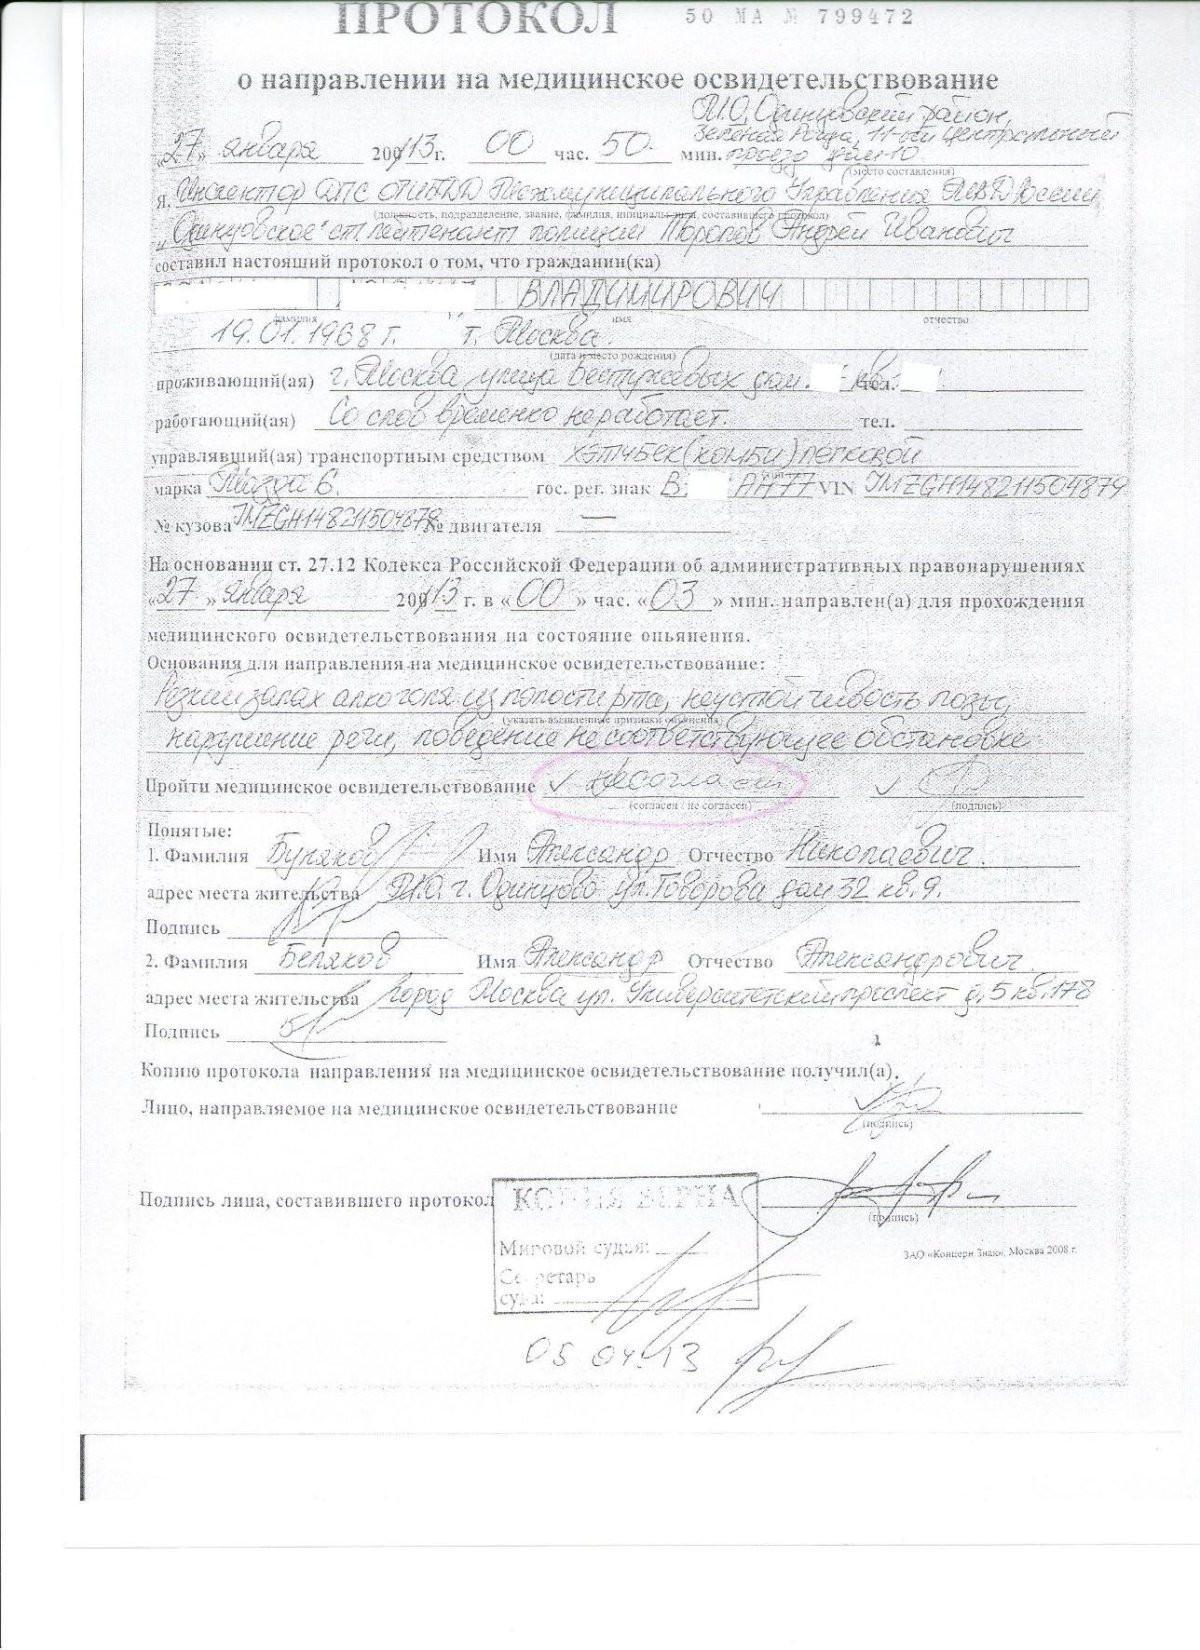 ПРОТОКОЛ 50 МА № 799472
о направлении на медицинское освидетельствование
М.О, Одинцовский район,
Зеленая Роща, 11-ый Центральный
«27» января 200/13 г. 00 час. 50 мин. проезд дом 10
(место составления)
Я, Инспектор ДПС ОГИБДД Межмуниципального Управления МВД России
(должность, подразделение, звание, фамилия, инициалы лица, составившего протокол)
„Одинцовское" ст. лейтенант полиции Торопов Андрей Иванович
составил настоящий протокол о том, что гражданин(ка)
ВЛАДИМИРОВИЧ
фамилия имя отчество
19.01.1968 г. г. Москва.
(дата и место рождения)
проживающий(ая) г. Москва улица Бестужевых дом. кв. тел.
работающий(ая) Со слов временно не работает. тел.
управлявший(ая) транспортным средством хэтчбек (комби) легковой
марка Мазда 6. гос. рег. знак В АН 77 VIN JMZGH148211504879
№ кузова JMZGH148211504879 № двигателя —
На основании ст. 27.12 Кодекса Российской Федерации об административных правонарушениях
«27» января 200/13 г. в «00» час. «03» мин. направлен(а) для прохождения
медицинского освидетельствования на состояние опьянения.
Основания для направления на медицинское освидетельствование:
Резкий запах алкоголя из полости рта, неустойчивость позы,
(указать выявленные признаки опьянения)
нарушение речи, поведение не соответствующее обстановке
Пройти медицинское освидетельствование несогласен
(согласен / не согласен) (подпись)
Понятые:
1. Фамилия Буняков Имя Александр Отчество Николаевич.
адрес места жительства М.О. г. Одинцово ул. Говорова дом 32 кв. 9.
Подпись
2. Фамилия Беляков Имя Александр Отчество Александрович
адрес места жительства город Москва ул. Университетский проспект д. 5 кв. 178
Подпись
Копию протокола направления на медицинское освидетельствование получил(а).
Лицо, направляемое на медицинское освидетельствование
(подпись)
Подпись лица, составившего протокол
(подпись)
КОПИЯ ВЕРНА
Мировой судья:
ЗАО «Концерн Знак», Москва 2008 г.
Секретарь
суда:
05 04.13